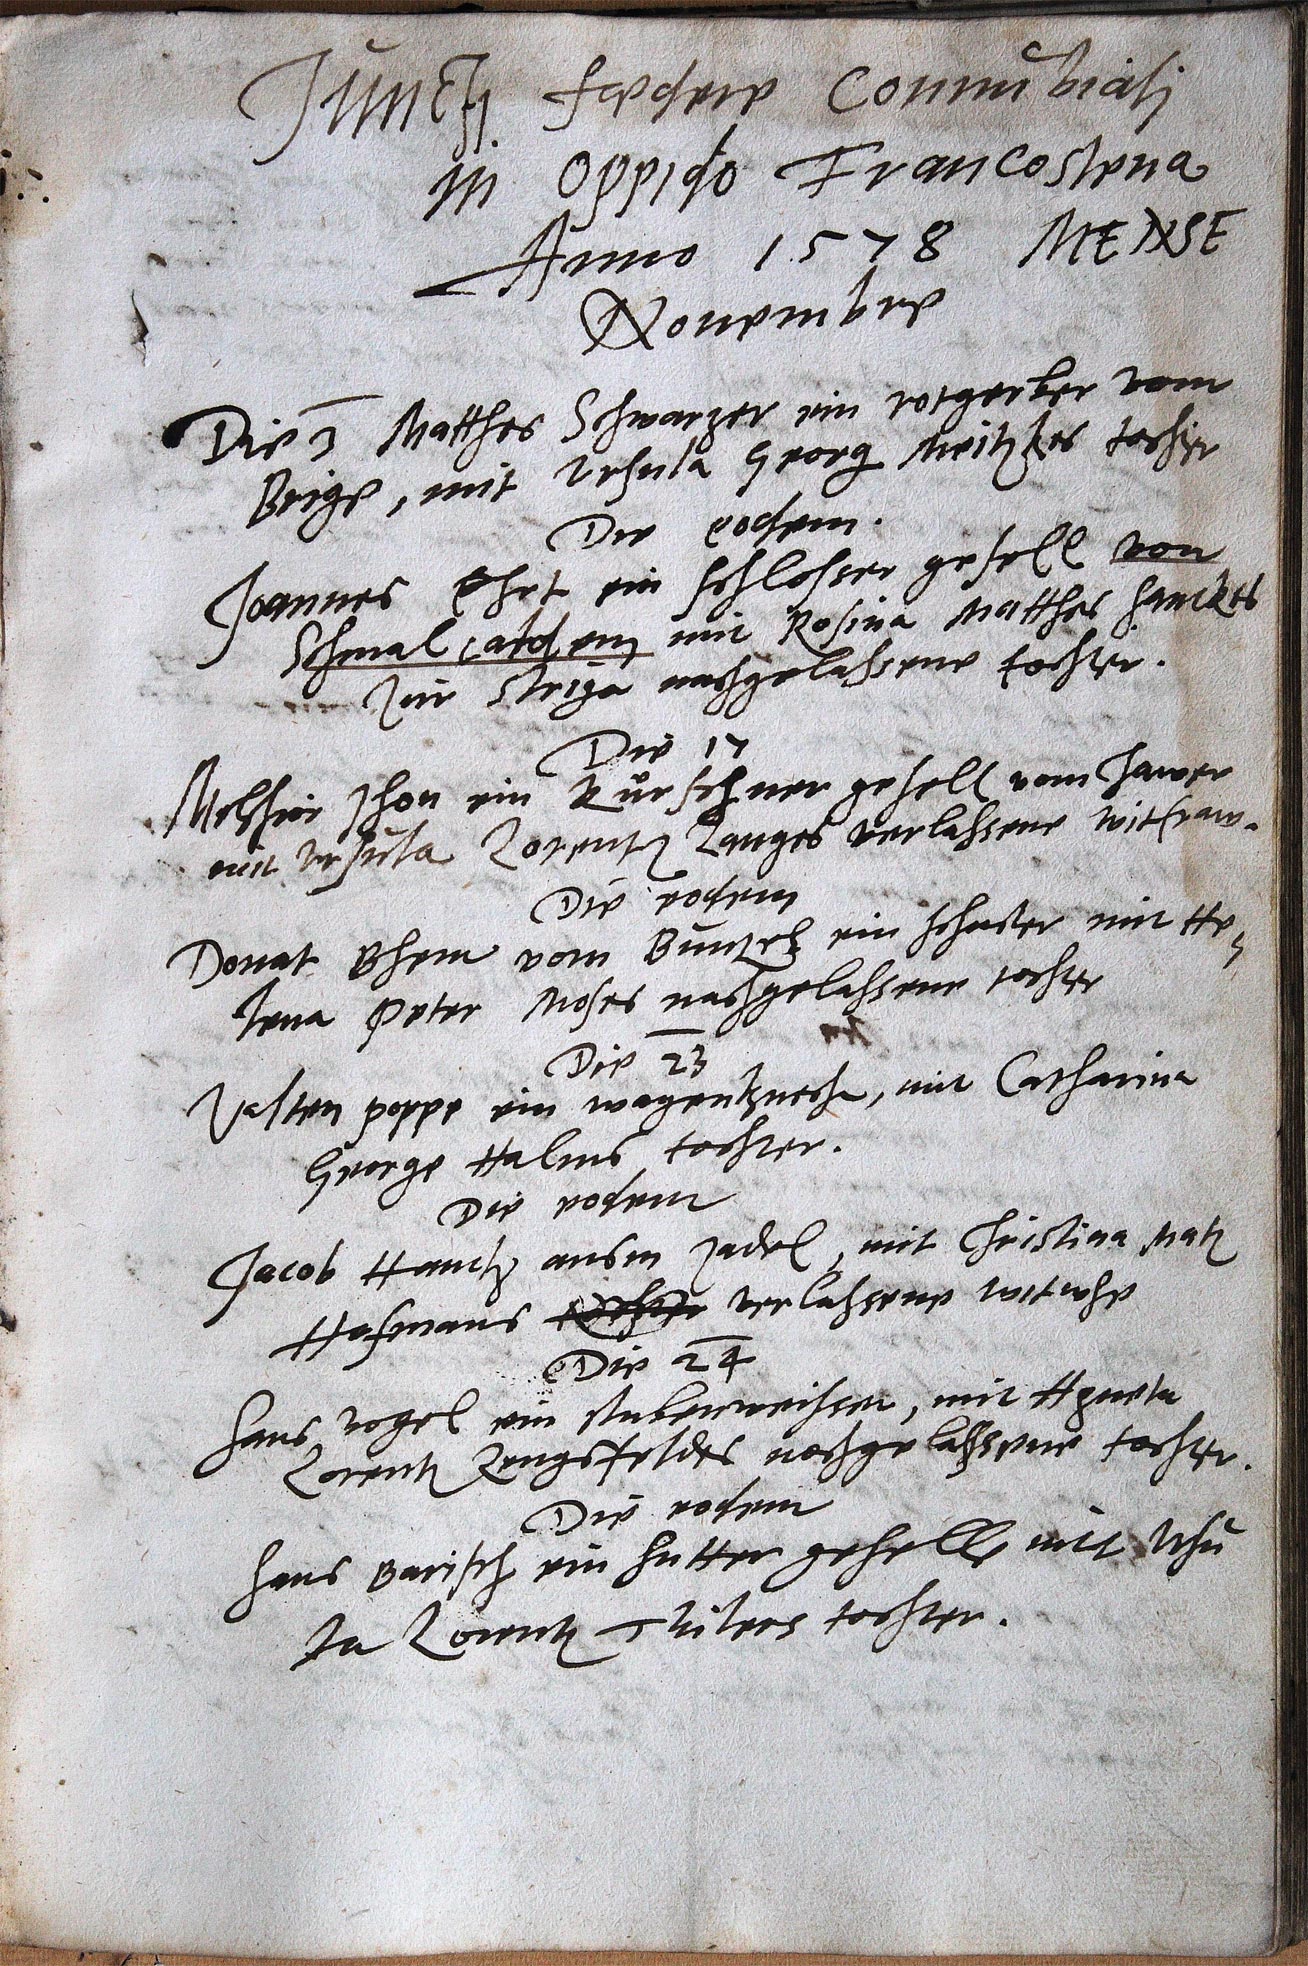 Iuncti foedere Connubiali
in Oppido Francostena
Anno 1578 MENSE
Nouembre
Die 3 Matthes Schwarzer ein rotgerber vom
Brige, mit Vrsula Georg tochter
Die eodem.
Joannes ein schlosser gesell von
Schmalcalden mit Rosina Matthes Hanckes
zur Striga nachgelassene tochter.
Die 17
Melchior Schon ein Kürschner gesell vom Jawer
mit Vrsula Lorentz Langes verlassene witfraw.
Die eodem
Donat Bhem vom Buntzel ein schuster mit He-
lena Peter Moses nachgelassene tochter
Die 23
Valten Poppe ein wagenknecht, mit Catharina
George Halms tochter.
Die eodem
Jacob ausm Zadel, mit Christina Matz
Hofmans verlassene wittwe
Die 24
Hans Vogel ein, mit Agneta
Lorentz Lengsfeldes nochgelassene tochter.
Die eodem
Hans Barisch ein hutter geselle mit Vrsu
la Lorentz tochter.